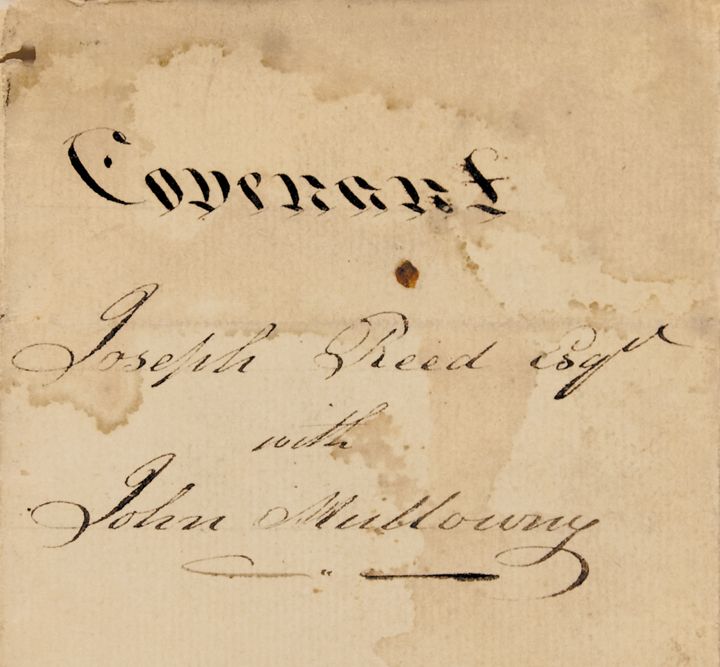 Covenant
Joseph Reed Esqr
with
John Mullowny